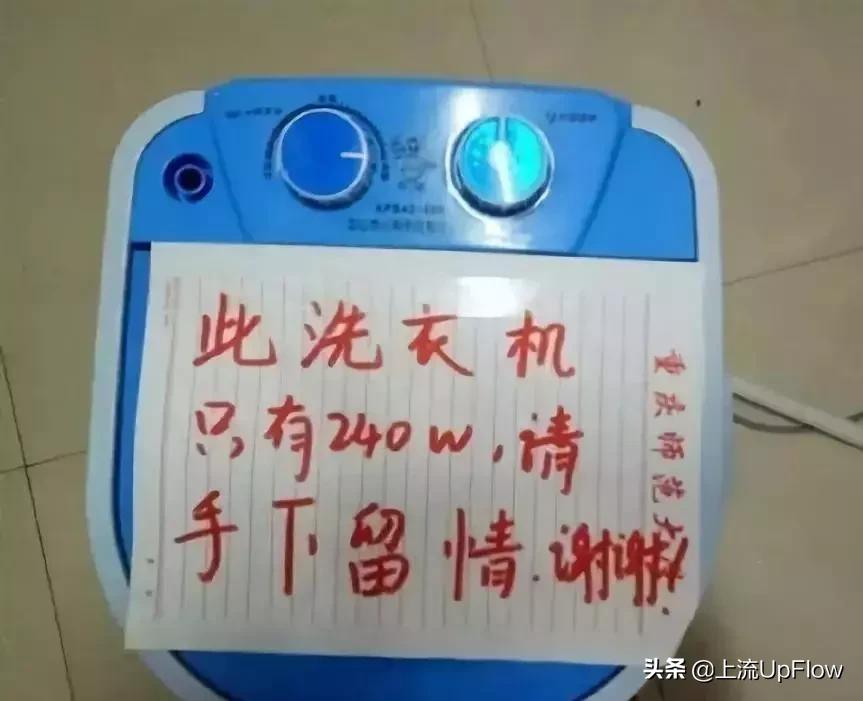 此洗衣机
只有240W,请
手下留情.谢谢!
重庆师范大
头条 @上流UpFlow